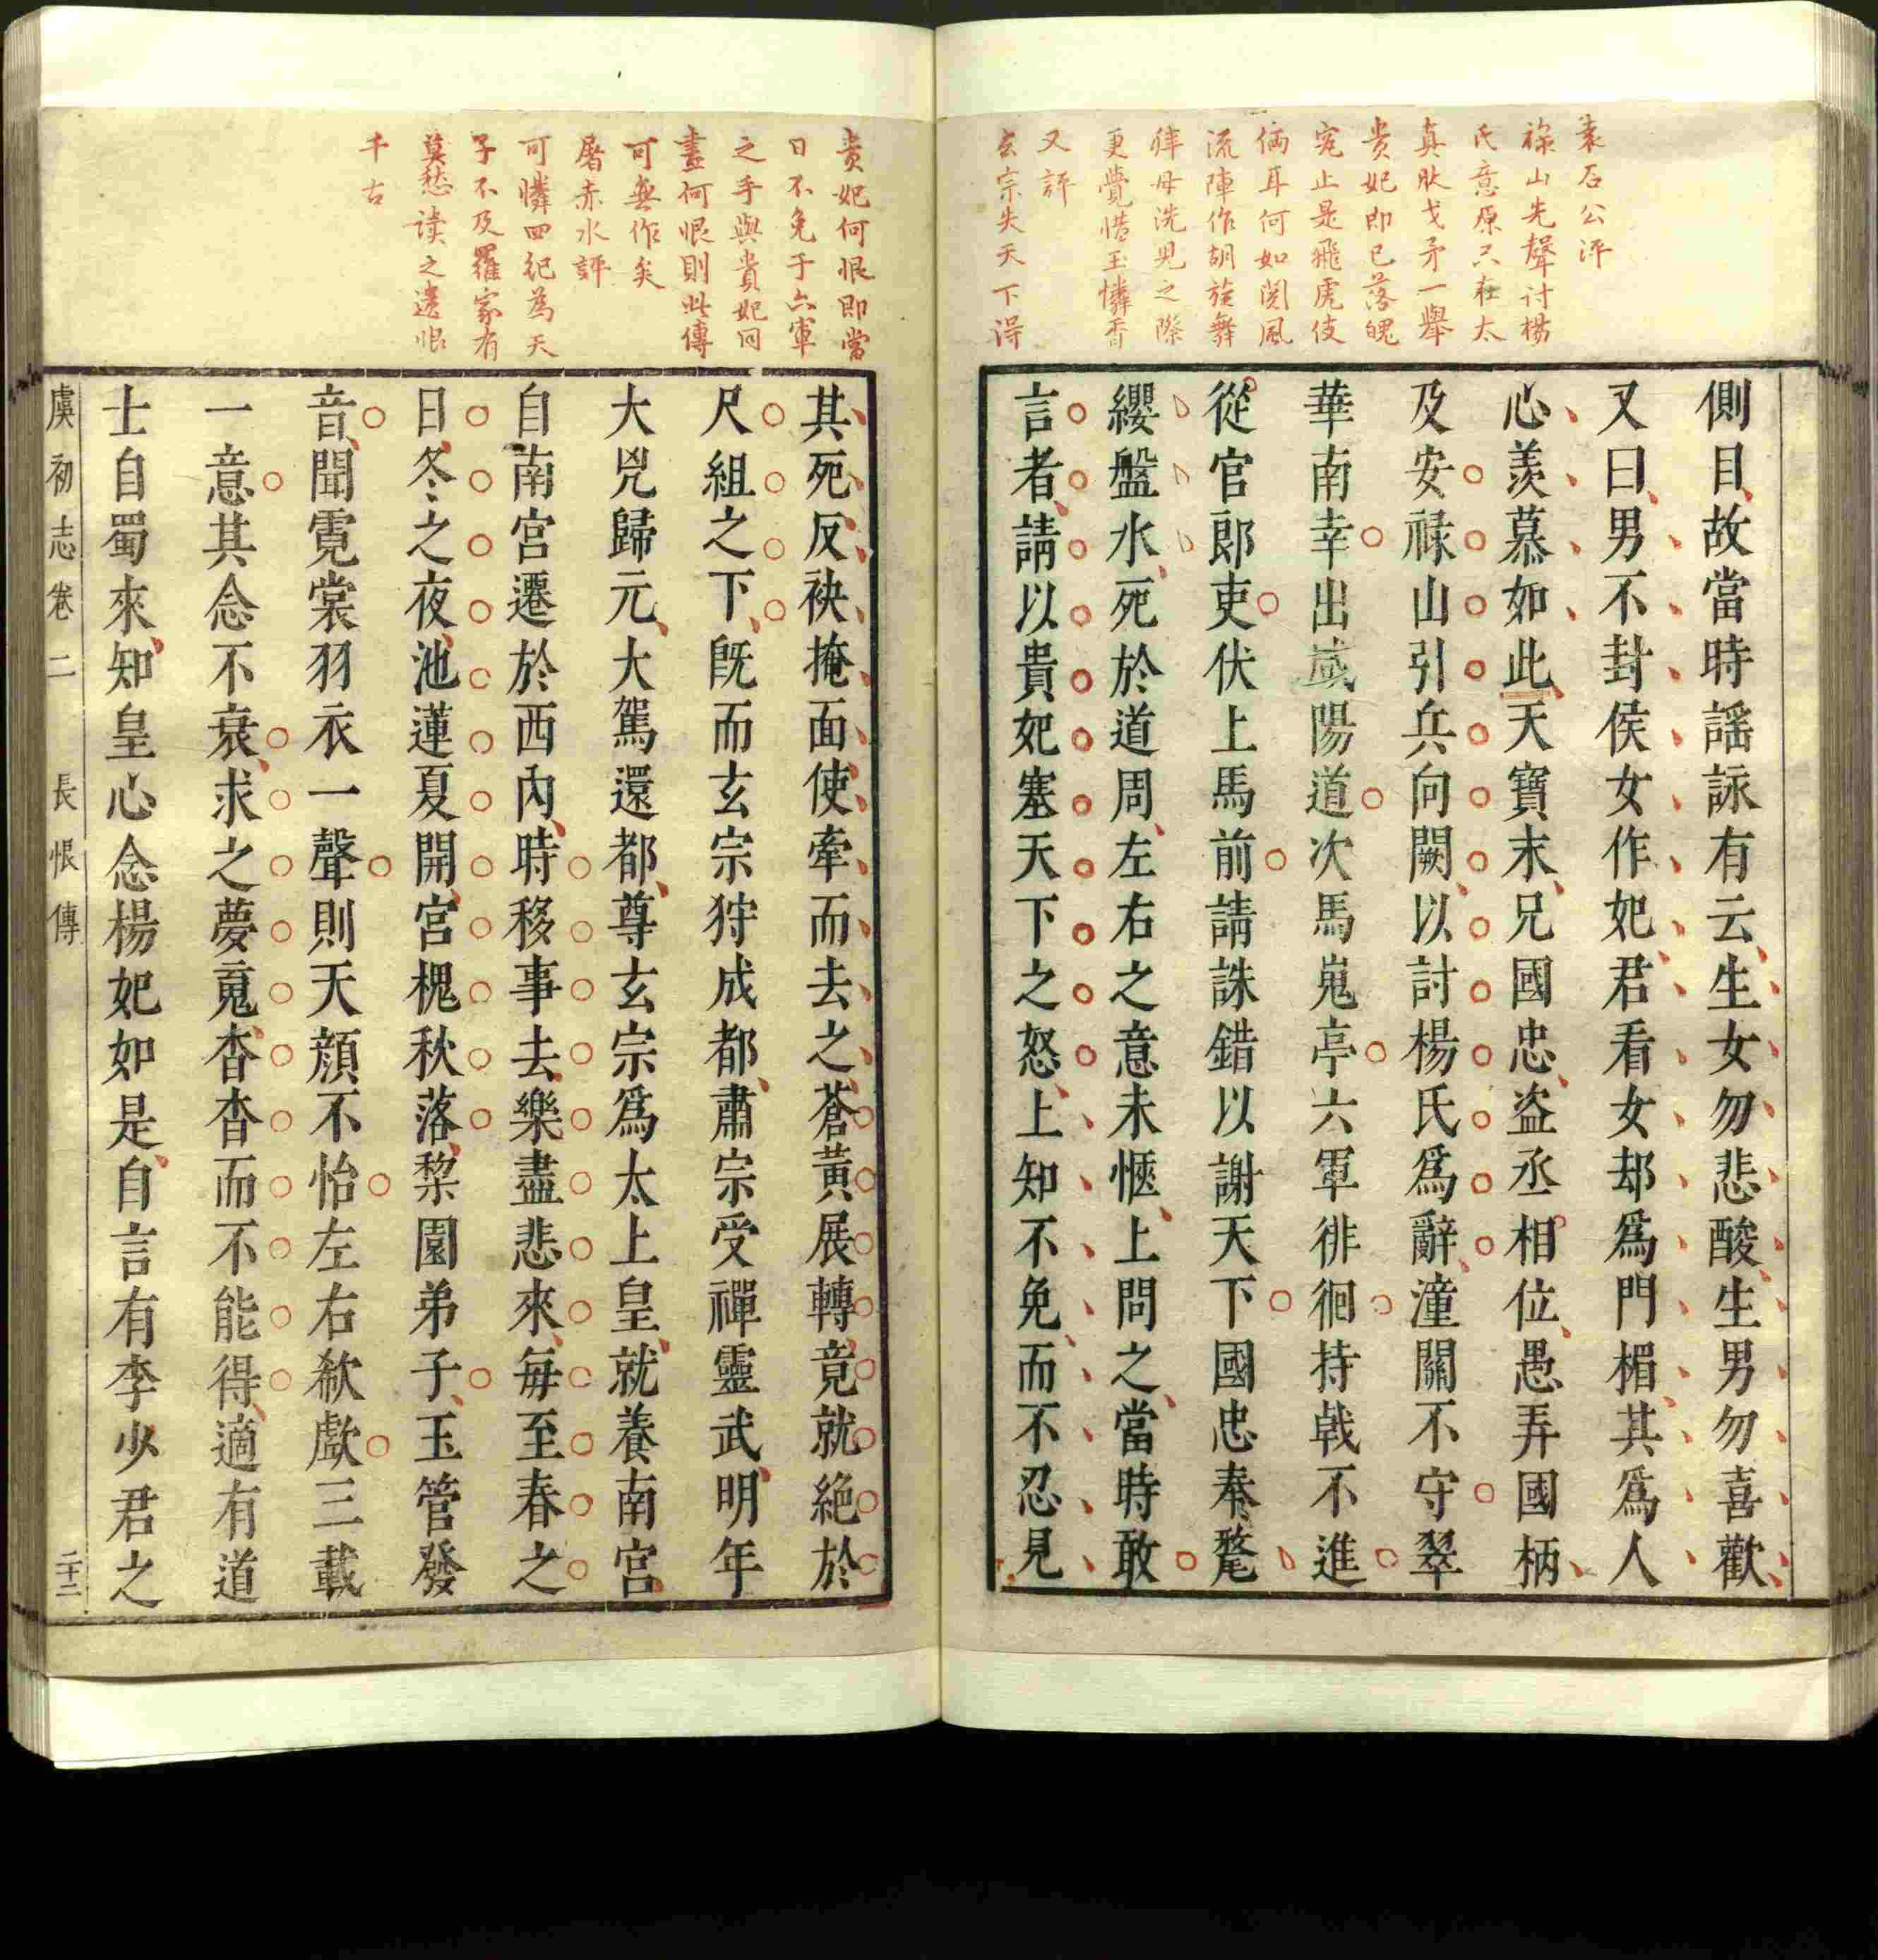 袁石公評
祿山先聲討楊
氏意原只在太
真肰戈矛一舉
貴妃即已落魄
寃止是飛虎伎
倆耳何如閲風
流陣作胡旋舞
徉母洗兒之際
更覺惜玉憐香
又評
玄宗失天下得
側目故當時謡詠有云生女勿悲酸生男勿喜歡
又曰男不封侯女作妃君看女却爲門楣其爲人
心羨慕如此天寶末兄國忠盗丞相位愚弄國柄
及安禄山引兵向闕以討楊氏爲辭潼關不守翠
華南幸出咸陽道次馬嵬亭六軍徘徊持戟不進
從官郎吏伏上馬前請誅錯以謝天下國忠奉氂
纓盤水死於道周左右之意未愜上問之當時敢
言者請以貴妃塞天下之怒上知不免而不忍見
貴妃何恨即當
日不免于六軍
之手與貴妃同
盡何恨則此傳
可無作矣
屠赤水評
可憐四紀為天
子不及羅家有
莫愁读之遺恨
千古
其死反袂掩面使牽而去之蒼黄展轉竟就絕於
尺組之下既而玄宗狩成都肅宗受禪靈武明年
大兇歸元大駕還都尊玄宗爲太上皇就養南宫
自南宫遷於西內時移事去樂盡悲來每至春之
日冬之夜池蓮夏開宫槐秋落棃園弟子玉管發
音聞霓裳羽衣一聲則天顔不怡左右欷歔三載
一意其念不衰求之夢䰟杳杳而不能得適有道
士自蜀來知皇心念楊妃如是自言有李少君之
虞初志卷二 長恨傳 二十二